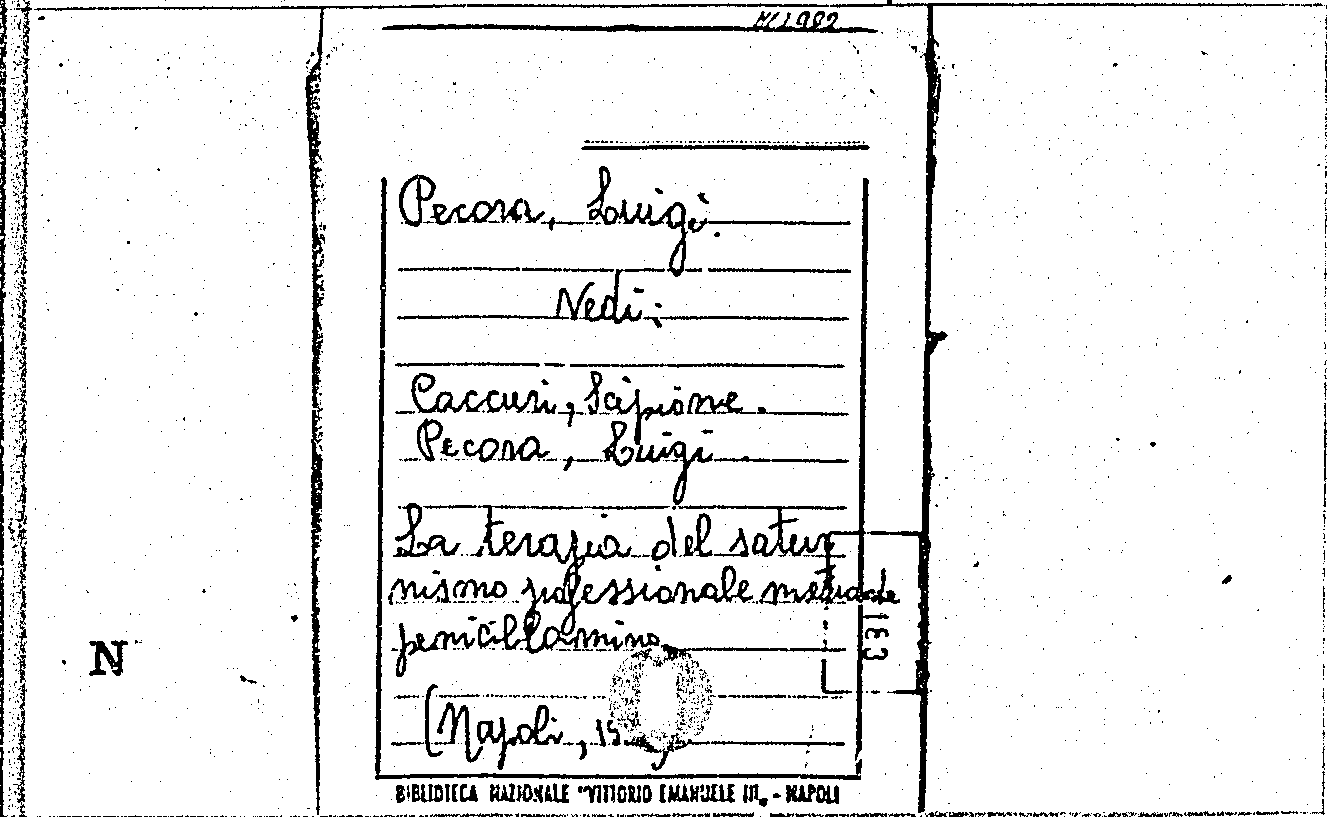 Pecora, Luigi.
Vedi:
Caccuri, Scipione.
Pecora, Luigi.
La terapia del satur
nismo professionale mediante
penicillamina
(Napoli,
183
N
BIBLIOTECA NAZIONALE "VITTORIO EMANUELE III„ - NAPOLI